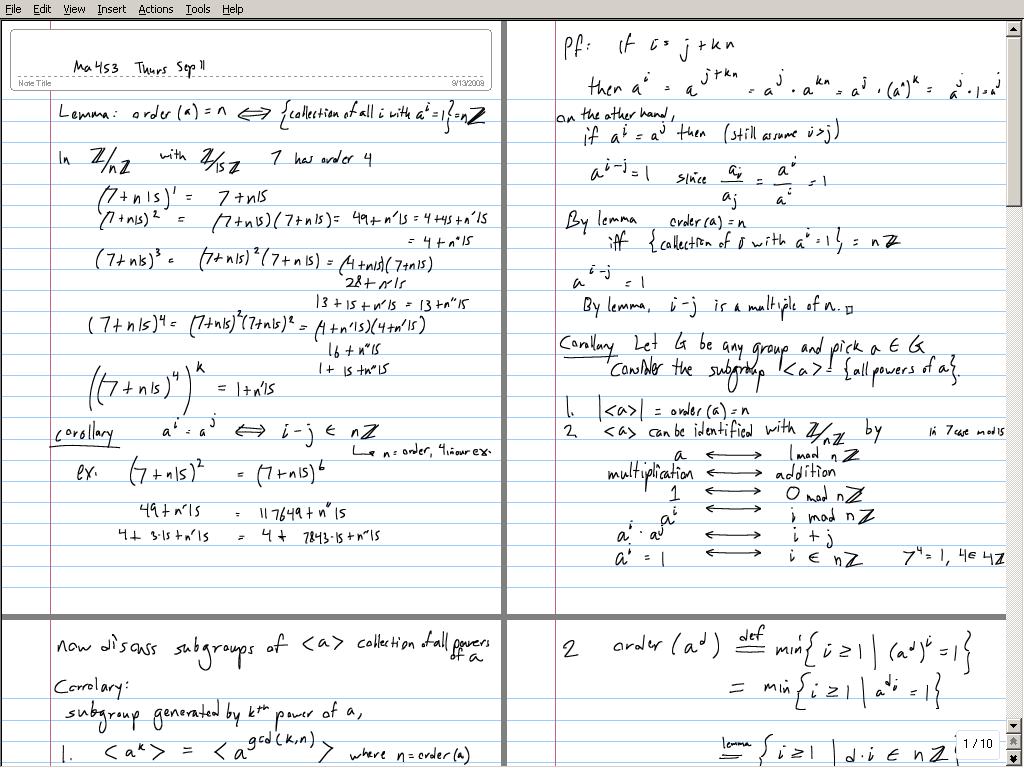 File Edit View Insert Actions Tools Help
Ma453 Thurs Sep 11
Note Title
9/13/2009
Lemma: order (a) = n ⟺ {collection of all i with a^i = 1} = nℤ
In ℤ/nℤ with ℤ/15ℤ 7 has order 4
(7+n15)^1 = 7+n15
(7+n15)^2 = (7+n15)(7+n15) = 49+n'15 = 4+45+n'15
= 4+n"15
(7+n15)^3 = (7+n15)^2(7+n15) = (4+n15)(7+n15)
28+n'15
13+15+n'15 = 13+n"15
(7+n15)^4 = (7+n15)^2(7+n15)^2 = (4+n'15)(4+n'15)
16+n"15
1+15+n"15
((7+n15)^4)^k = 1+n'15
Corollary a^i = a^j ⟺ i-j ∈ nℤ
↳ n=order, 4 in our ex.
ex. (7+n15)^2 = (7+n15)^6
49+n'15 = 117649+n"15
4+3·15+n'15 = 4+7843·15+n"15
Pf: if i = j+kn
then a^i = a^{j+kn} = a^j · a^{kn} = a^j · (a^n)^k = a^j · 1 = a^j
on the other hand,
if a^i = a^j then (still assume i>j)
a^{i-j} = 1 since a_i/a_j = a^i/a^i = 1
By lemma order(a) = n
iff {collection of i with a^i = 1} = nℤ
a^{i-j} = 1
By lemma, i-j is a multiple of n. □
Corollary Let G be any group and pick a ∈ G
Consider the subgroup <a> = {all powers of a}.
1. |<a>| = order(a) = n
2 <a> can be identified with ℤ/nℤ by in 7 case mod 15
a ⟷ 1 mod nℤ
multiplication ⟷ addition
1 ⟷ 0 mod nℤ
a^i ⟷ i mod nℤ
a^i · a^j ⟷ i+j
a^i = 1 ⟷ i ∈ nℤ 7^4 = 1, 4 ∈ 4ℤ
now discuss subgroups of <a> collection of all powers of a
Corrolary:
subgroup generated by k^th power of a,
1. <a^k> = <a^{gcd(k,n)}> where n = order(a)
2 order (a^d) def= min{i ≥ 1 | (a^d)^i = 1}
= min{i ≥ 1 | a^{di} = 1}
lemma= {i ≥ 1 | d·i ∈ nℤ}
1 / 10